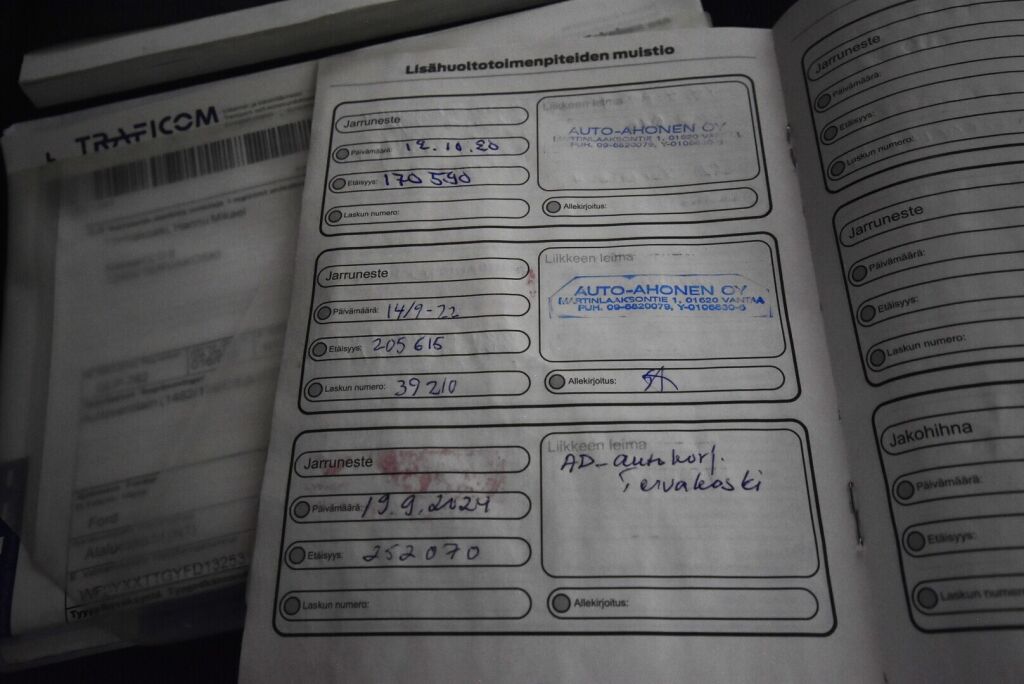 TRAFICOM
Ford
Lisähuoltotoimenpiteiden muistio
Jarruneste
Päivämäärä: 12.10.20
Etäisyys: 170 590
Laskun numero:
Liikkeen leima
AUTO-AHONEN OY
MARTINLAAKSONTIE 1, 01620 VANTAA
PUH. 09-8520079,
Allekirjoitus:
Jarruneste
Päivämäärä: 14/9-22
Etäisyys: 205 615
Laskun numero: 39210
Liikkeen leima
AUTO-AHONEN OY
MARTINLAAKSONTIE 1, 01620 VANTAA
Allekirjoitus:
Jarruneste
Päivämäärä: 19.9.2024
Etäisyys: 252070
Laskun numero:
Liikkeen leima
AD-autokorj.
Tervakoski
Allekirjoitus:
Jarruneste
Päivämäärä:
Etäisyys:
Laskun numero:
Jarruneste
Päivämäärä:
Etäisyys:
Laskun numero:
Jakohihna
Päivämäärä:
Etäisyys:
Laskun numero: